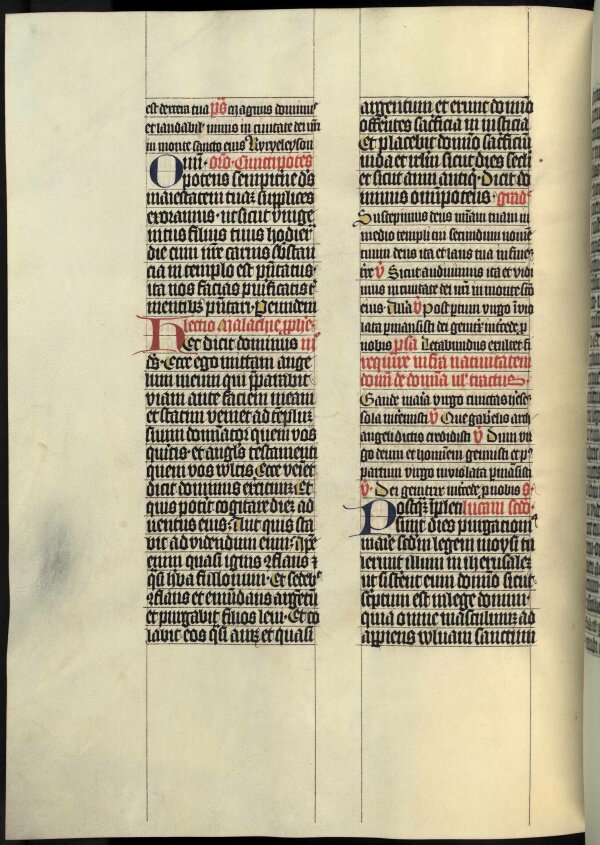 est dextera tua p̄s Magnus dominus
et laudabil' nimis in ciuitate dei nr̄i
in monte sancto eius Kyryeleyson
Om̄s oro Cunctipotēs
potens sempit'ne d's
maiestatem tuā supplices
exoramus ut sicut vnige
nitus filius tuus hodier
die cum nr̄e carnis sb̄stan
cia in templo est pn̄tatus
ita nos facias purificatis t'
mentib3 pn̄tari Per eundem
lectio Malachie pphe
Hec dicit dominus
d's Ecce ego mittam ange
lum meum qui pparabit
viam ante faciem meam
et statim veniet ad templū
suum dominator quem vos
quitis et angl's testamenti
quem vos vultis Ecce veniet
dicit dominus exercituū Et
quis potit cogitare diem ad
uentus eius Aut quis sta
bit ad videndum eum Ipe
enim quasi ignis oflans et
q̄si hba fullonum Et sedeb'
oflans et emūdans argētū
et purgabit filios leui Et co
labit eos q̄si aurū et quasi
argentum et erunt domīo
offerentes sacrificia in iusticia
Et placebit domīo sacrificiū
iuda et irlm sicut dies secli
et sicut anni antiq' Dicit do
minus om̄ipotens grad'
Suscepimus deus mīam tuam in
medio templi tui secundum nomē
tuum deus ita et laus tua in fines
tre v̄ Sicut audiuimus ita et vidi
mus in ciuitate dei nr̄i in monte scō
eius All'a v̄ Post ptum virgo īuio
lata pmansisti dei genitrix intercede p
nobis psā Letabundus exultet fi
require infra natiuitatem
domī de domīa vl' tractus
Gaude maria virgo cunctas hese
sola intemisti v̄ Que gabrielis arch
angeli dictis credidisti v̄ Dum vir
go deum et hominem genuisti et p'
partum virgo inuiolata pmāsisti
v̄ Dei genitrix intercede p nobis S.
Postq̄ īpleti lucam secd'
sunt dies purgationis
marie scd'm legem moysi tu
lerunt illum in iherusalē
ut sisterent eum domīo sicut
scriptum est in lege domini
quia omne masculinū ad
apperiens vuluam sanctum